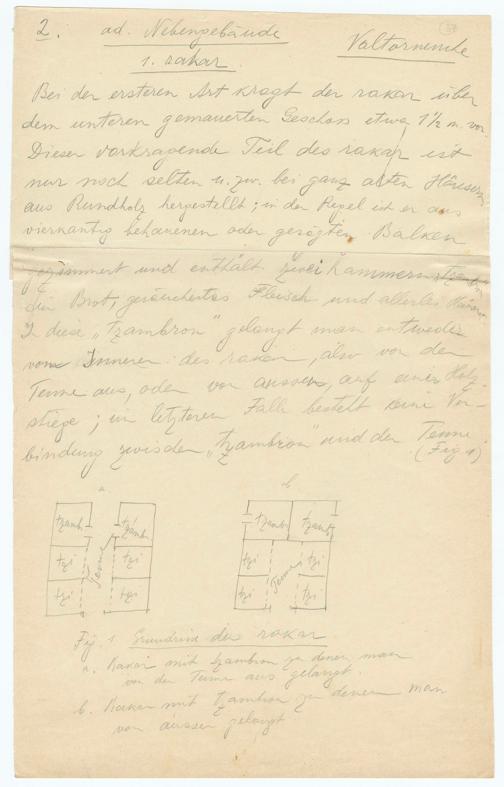 2. ad. Nebengebäude
Valtornenche
1. rakar.
Bei der ersteren Art kragt der rakar über
dem unteren gemauerten Geschoss etwa 1½ m. vor.
Dieser vorkragende Teil des rakar ist
nur noch selten u. zw. bei ganz alten Häusern
aus Rundholz hergestellt; in der Regel ist er aus
vierkantig behauenen oder gesägten Balken
gezimmert und enthält zwei Kammern
für Brot, geräuchertes Fleisch und allerlei
In diese „tzambron" gelangt man entweder
vom Inneren des rakar, also von der
Tenne aus, oder von aussen, auf einer Holz-
stiege; im letzteren Falle besteht keine Ver-
bindung zwischen „tzambron" und der Tenne.
(Fig 1)
a. b.
tzambr. tzambr. tzambr. tzambr.
tzi tzi tzi tzi
Tenne Tenne
tzi tzi tzi tzi
Fig. 1 Grundriss des rakar
a. Rakar mit tzambron zu denen man
von der Tenne aus gelangt.
b. Rakar mit tzambron zu denen man
von aussen gelangt